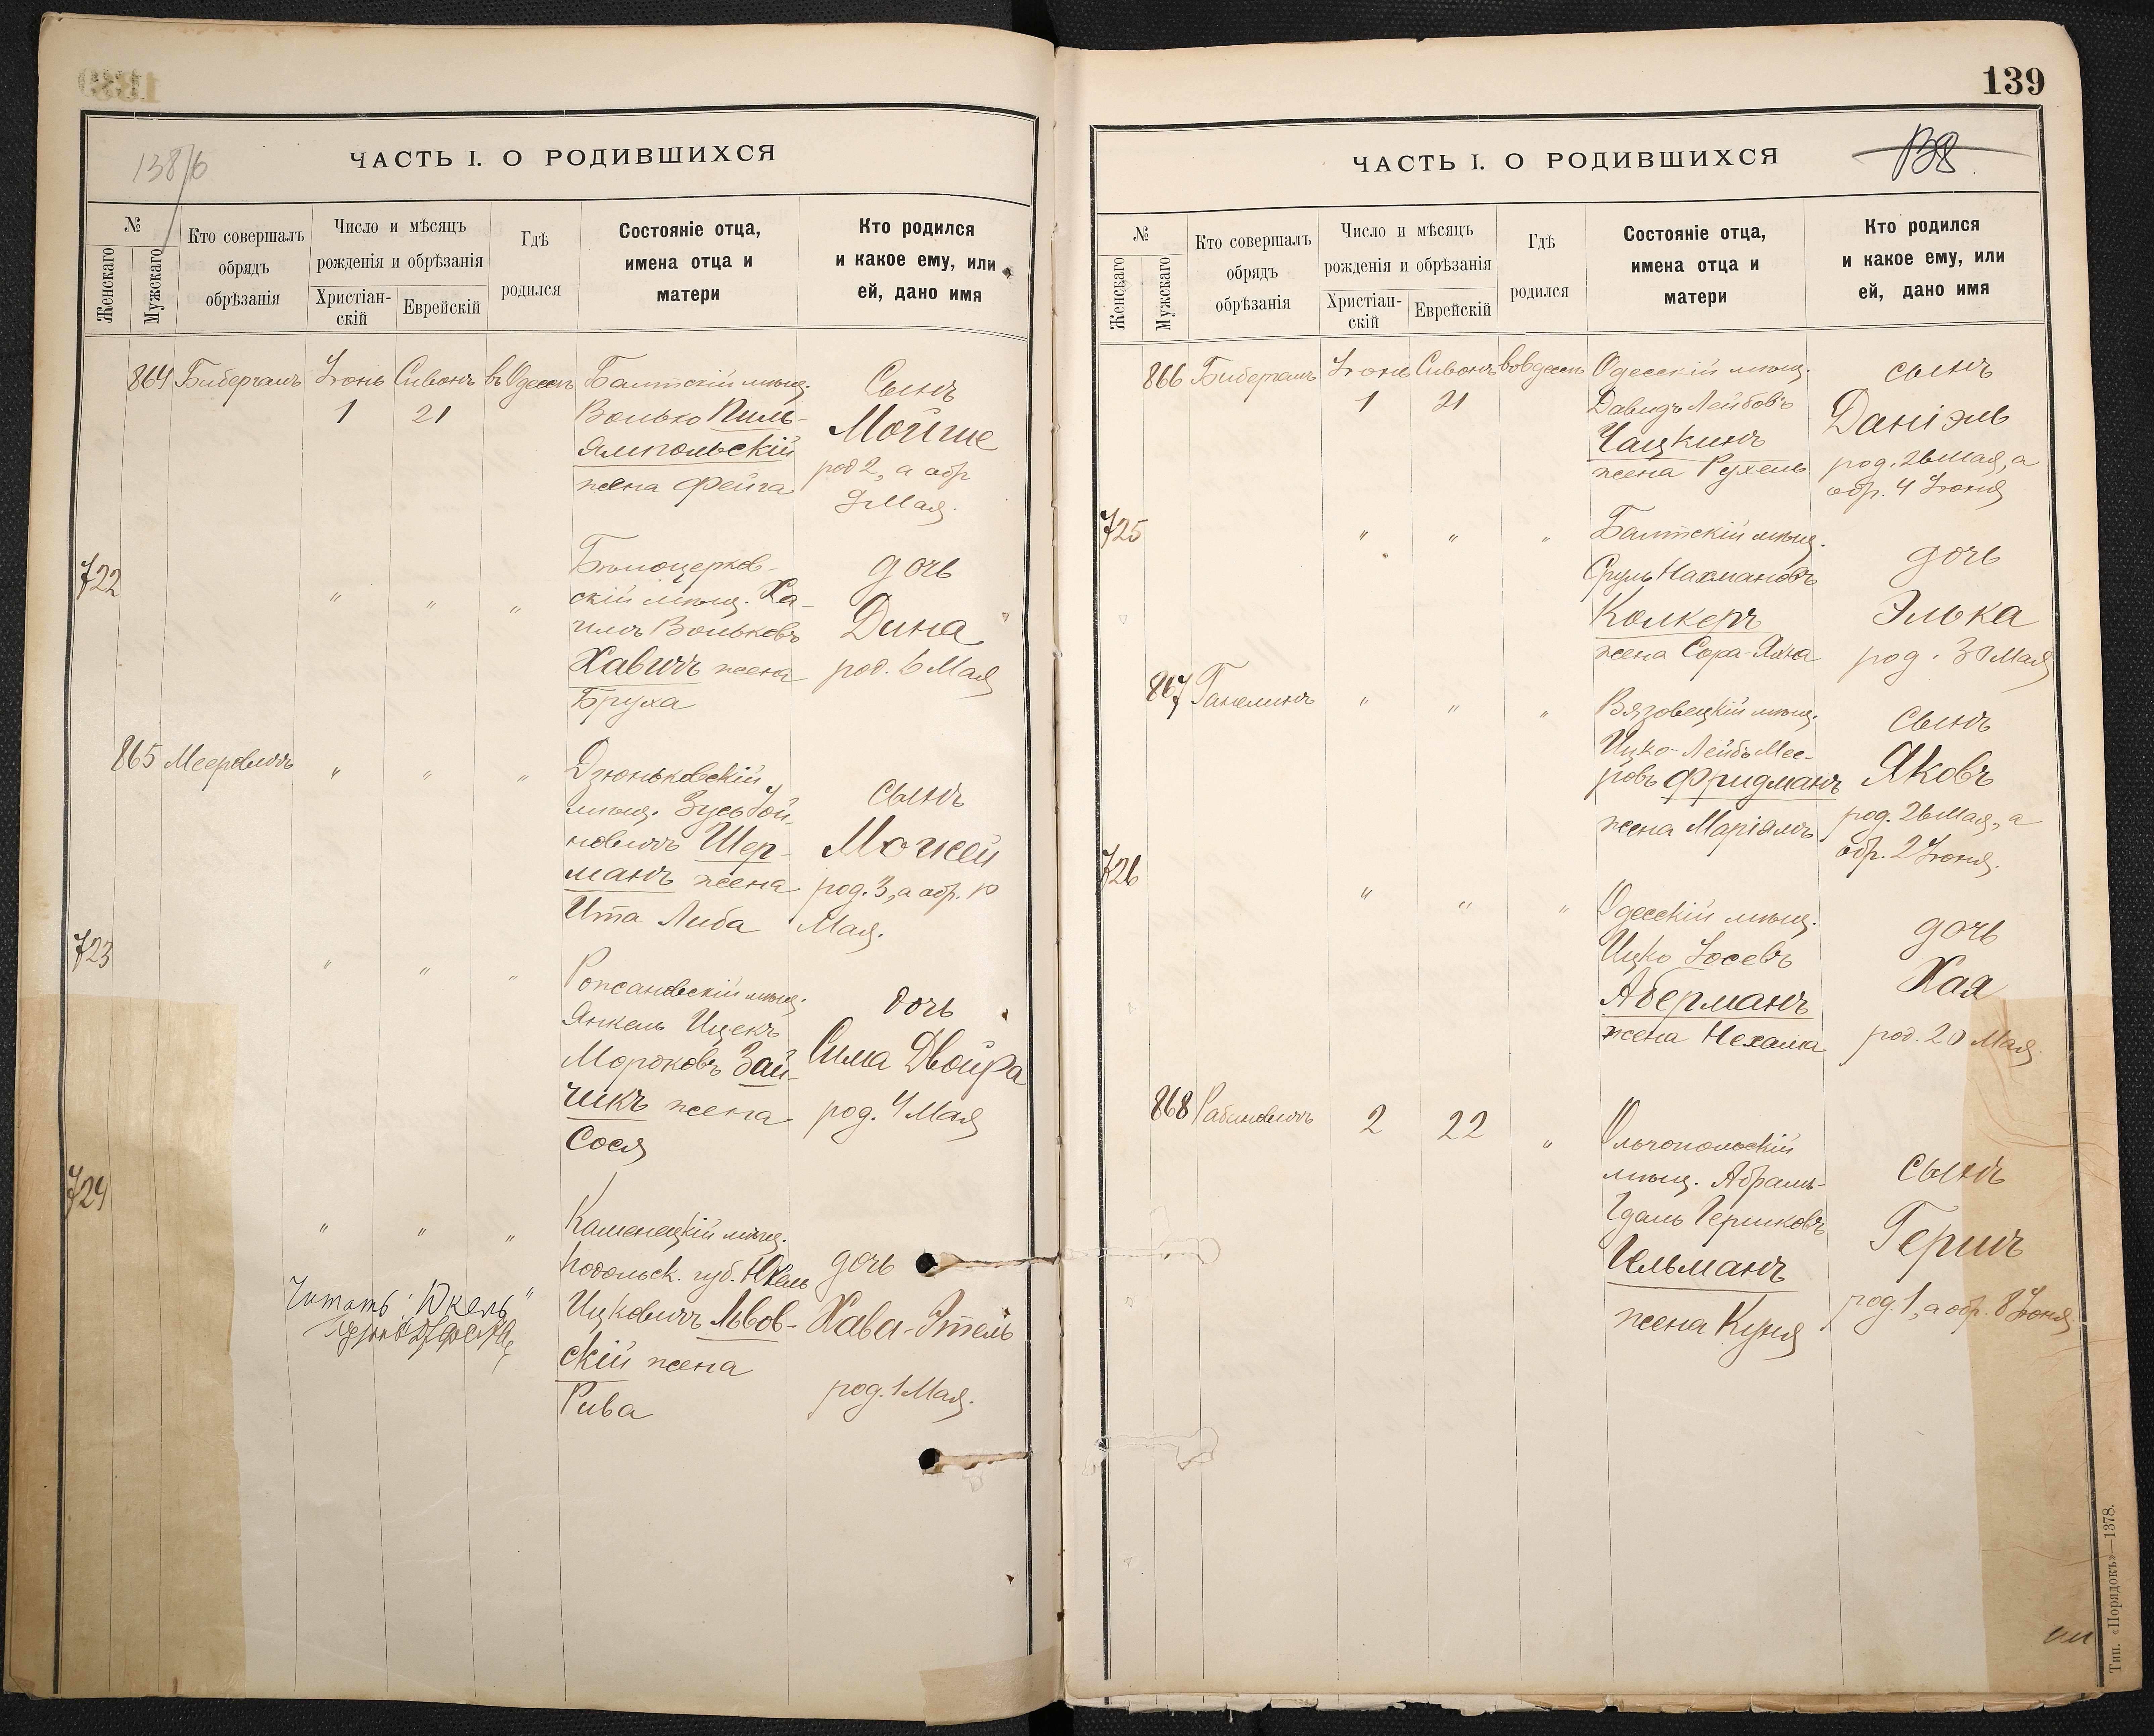 138/б
ЧАСТЬ I. О РОДИВШИХСЯ
№
Женскаго
Мужскаго
Кто совершалъ
обрядъ
обрѣзанія
Число и мѣсяцъ
рожденія и обрѣзанія
Христіан-
скій
Еврейскій
Гдѣ
родился
Состояніе отца,
имена отца и
матери
Кто родился
и какое ему, или
ей, дано имя
864 Бибергалъ Іюнь Сивонъ въ Одессѣ Балтскій мѣщ. Сынъ
1 21 Волько Пиль- Мойше
Ямпольскій род 2, а обр
жена Фейга 9 Мая.
722 Бѣлоцерков- дочь
" " " скій мѣщ. Ха-
Вольковъ Дина
Хавичъ жена род. 6 Мая
Бруха
865 Мееровичъ " " " Дзюньковскій
мѣщ. Зусь Дой- сынъ
новичъ Шер- Мошей
манъ жена род. 3, а обр. 10
Ита Либа Мая.
723 " " " мѣщ. дочь
Янкель Ицекъ
Мордковъ Зай- Сима Двойра
чикъ жена род. 4 Мая
Сося
724 " " " Каменецкій мѣщ.
Подольск. губ. Юкель дочь
Читать: "Юкель"
Ицковичъ Львов- Хава-Этель
скій жена
Рива род. 1 Мая.
139
138
ЧАСТЬ I. О РОДИВШИХСЯ
№
Женскаго
Мужскаго
Кто совершалъ
обрядъ
обрѣзанія
Число и мѣсяцъ
рожденія и обрѣзанія
Христіан-
скій
Еврейскій
Гдѣ
родился
Состояніе отца,
имена отца и
матери
Кто родился
и какое ему, или
ей, дано имя
866 Бибергалъ Іюнь Сивонъ въ Одессѣ Одесскій мѣщ. сынъ
1 21 Давидъ Лейбовъ Даніэль
Чацкинъ род. 26 Мая, а
жена Рухель обр. 4 Іюня
725 " " " Балтскій мѣщ. дочь
Сруль Нахмановъ
Колкеръ Элька
жена Сора- род. 30 Мая
867 Ганелинъ " " " Вязовецкій мѣщ. сынъ
Ицко-Лейбъ Мее-
ровъ Фридманъ Яковъ
жена Маріамъ род. 26 Мая, а
обр. 2 Іюня.
726 " " " Одесскій мѣщ. дочь
Ицко Іосевъ
Аберманъ Хая
жена Нехама род. 20 Мая
868 Рабиновичъ 2 22 " Ольгопольскій
мѣщ. Абрамъ- сынъ
Гдаль Гершковъ
Гельманъ Гершъ
жена Куня род. 1, а обр. 8 Іюня
Тип. «Порядокъ»—1378.